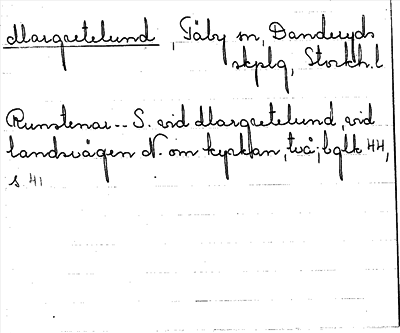 Margretelund, Täby sn, Danderyds
skplg, Stockh. l
Runstenar -- S. vid Margretelund, vid
landsvägen N. om kyrkan, två; bglk 44,
s 41